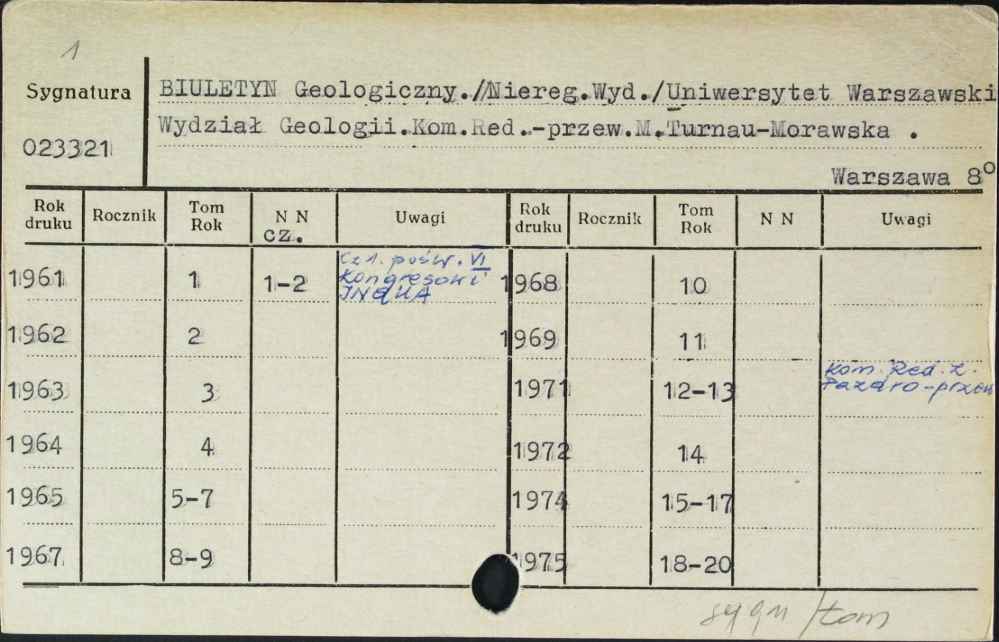 1
Sygnatura
023321
BIULETYN Geologiczny.//Niereg.Wyd./Uniwersytet Warszawski
Wydział Geologii.Kom.Red.-przew.M.Turnau-Morawska .
Warszawa 8°
Rok druku Rocznik Tom Rok N N cz. Uwagi Rok druku Rocznik Tom Rok N N Uwagi
1961 1 1-2 Cz 1. pośw. VI Kongresowi INQUA 1968 10
1962 2 1969 11
1963 3 1971 12-13 Kom. Red. Z. Pazdro-przew
1964 4 1972 14
1965 5-7 1974 15-17
1967 8-9 1975 18-20
sygn/tom